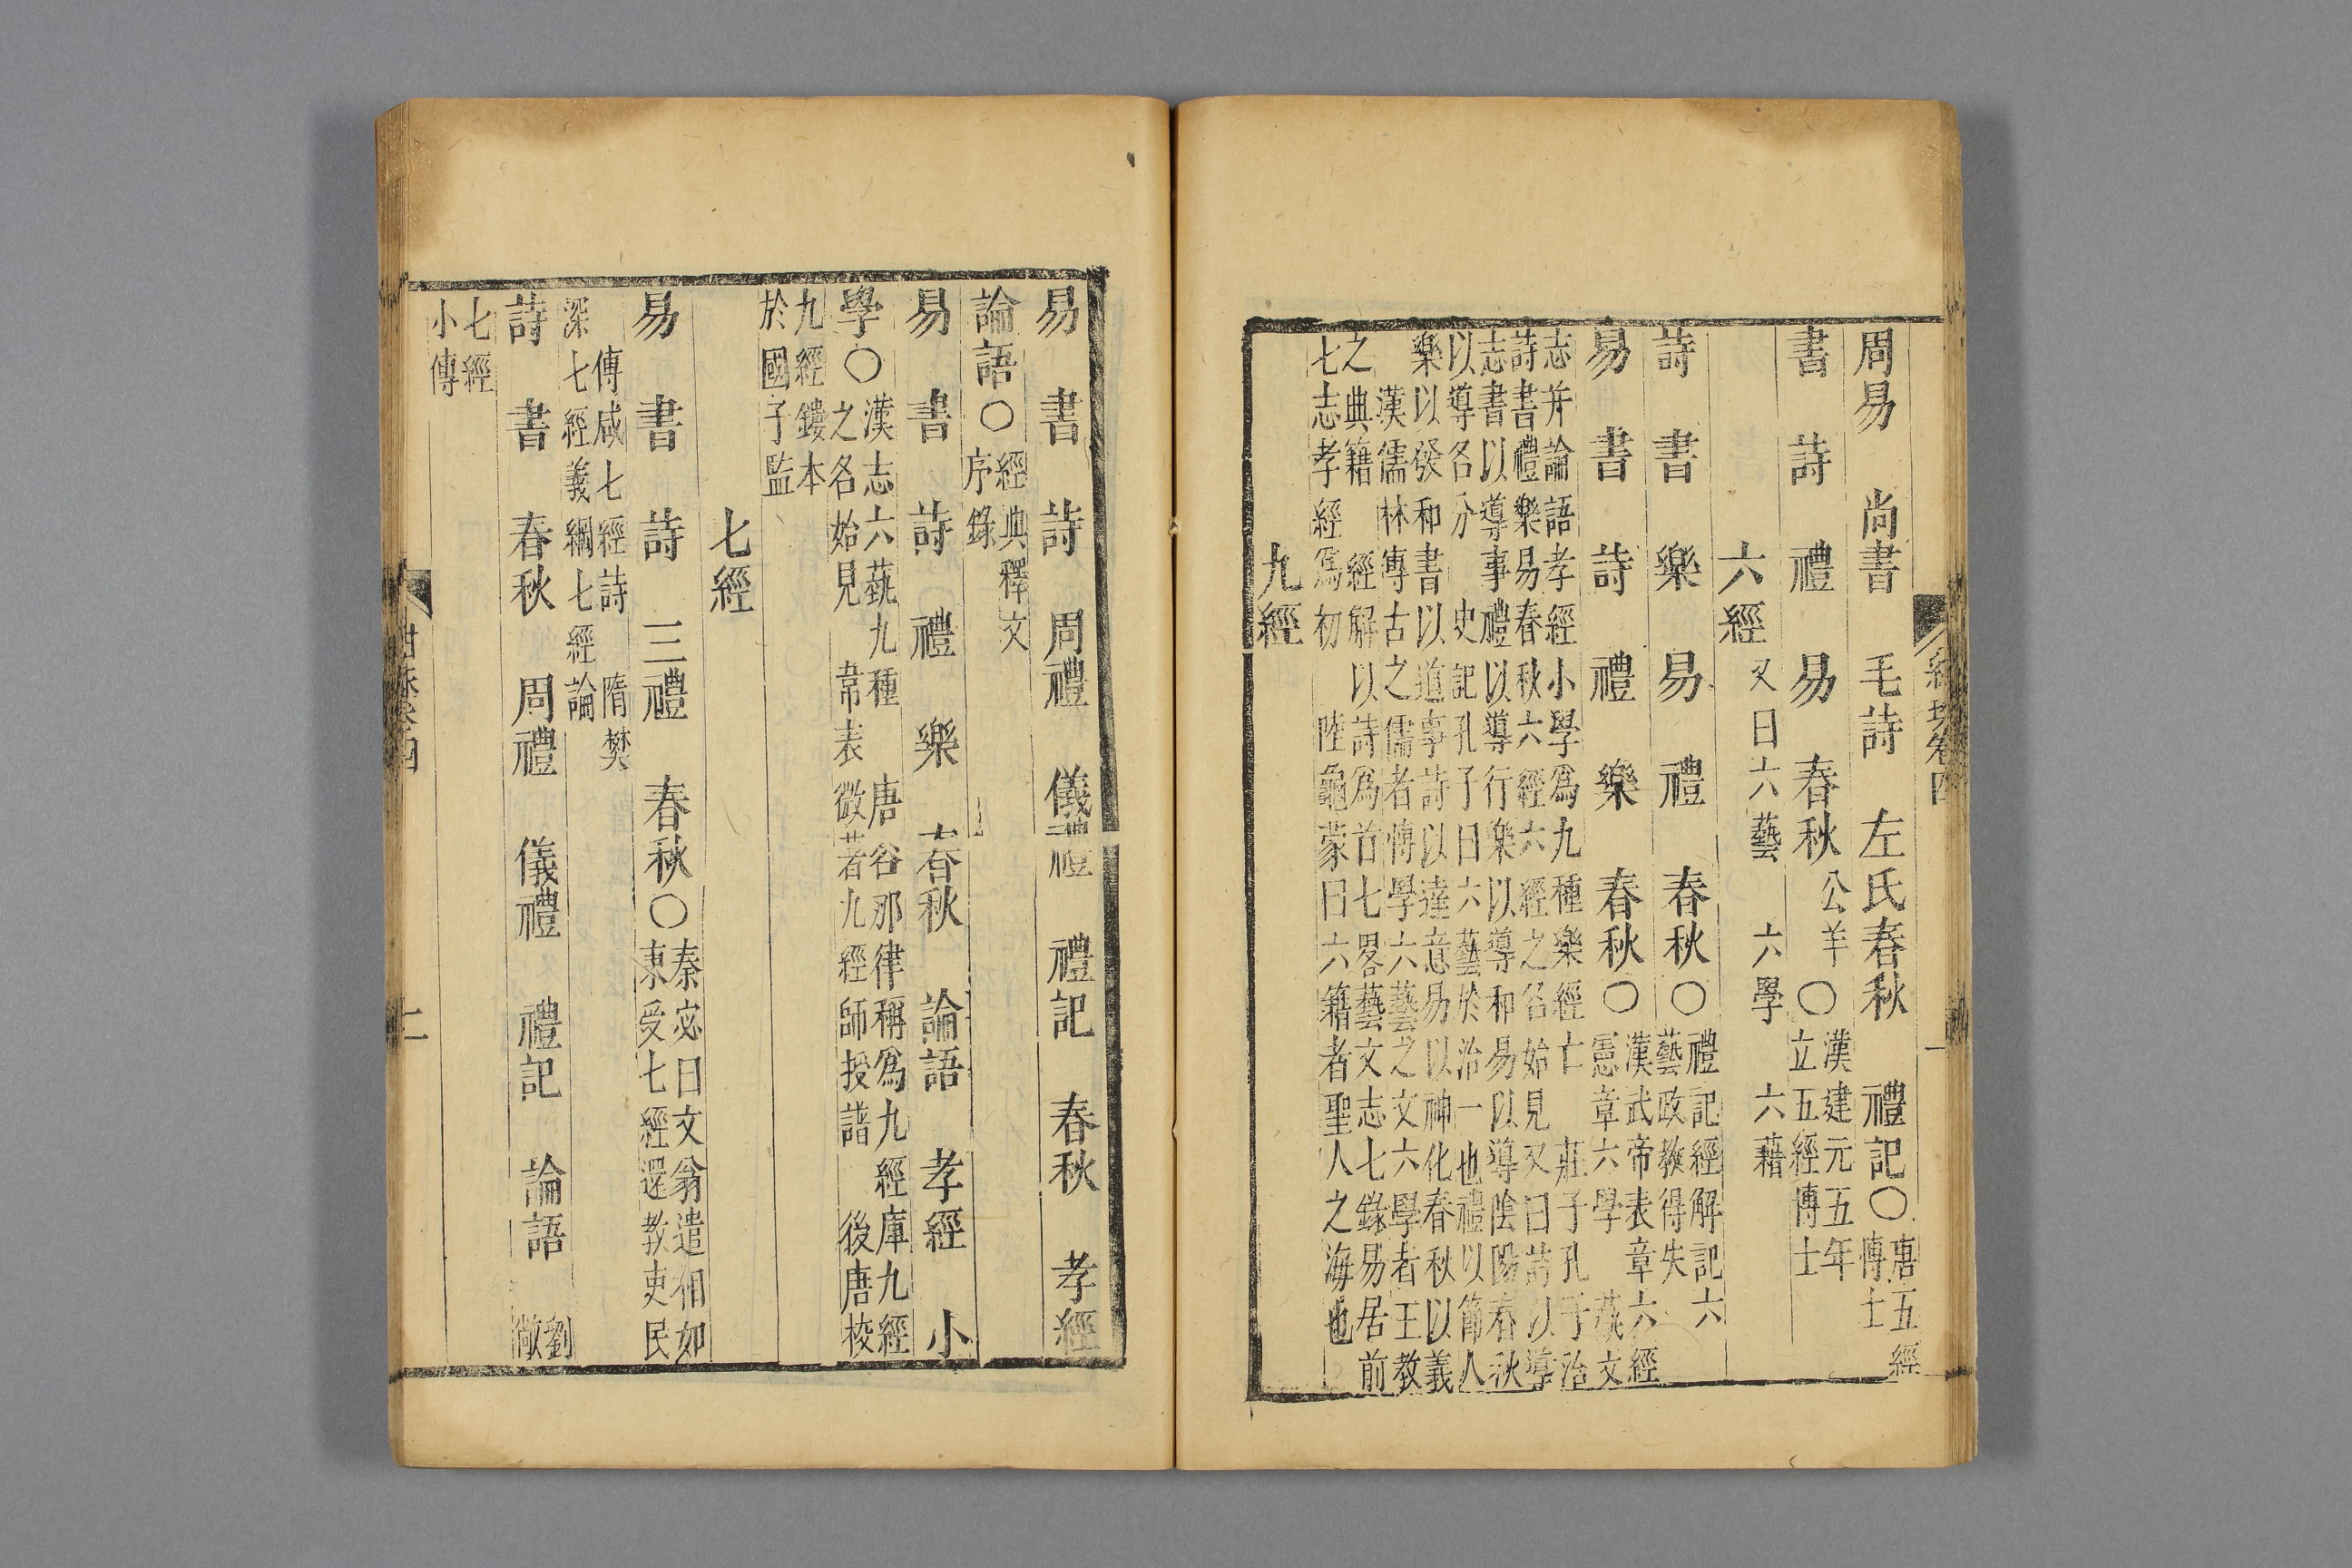 周易　尚書　毛詩　左氏春秋　禮記〇唐五經
博士
書　詩　禮　易　春秋　公羊〇漢建元五年
立五經博士
六經　又曰六藝　六學　六藉
詩　書　樂　易　禮　春秋〇禮記經解記六
藝政教得失
易　書　詩　禮　樂　春秋〇漢武帝表章六經
憲章六學　藝文
志并論語孝經小學爲九種樂經亡　莊子孔子治
詩書禮樂易春秋六經六經之名始見又曰詩以導
志書以導事禮以導行樂以導和易以導陰陽春秋
以導名分　史記孔子曰六藝於治一也禮以節人
樂以發和書以道事詩以達意易以神化春秋以義
漢儒林傳古之儒者博學六藝之文六學者王教
之典籍　經解以詩爲首七畧藝文志七錄易居前
七志孝經爲初　陸龜蒙曰六籍者聖人之海也
九經
易　書　詩　周禮　儀禮　禮記　春秋　孝經
論語〇經典釋文
序錄
易　書　詩　禮　樂　春秋　論語　孝經　小
學〇漢志六藝九種　唐谷那律稱爲九經庫九經
之名始見　韋表微著九經師授譜　後唐校
九經鏤本
於國子監
七經
易　書　詩　三禮　春秋〇秦宓曰文翁遣相如
東受七經還教吏民
傅咸七經詩　隋樊
深七經義綱七經論
詩　書　春秋　周禮　儀禮　禮記　論語　劉
敞
七經
小傳